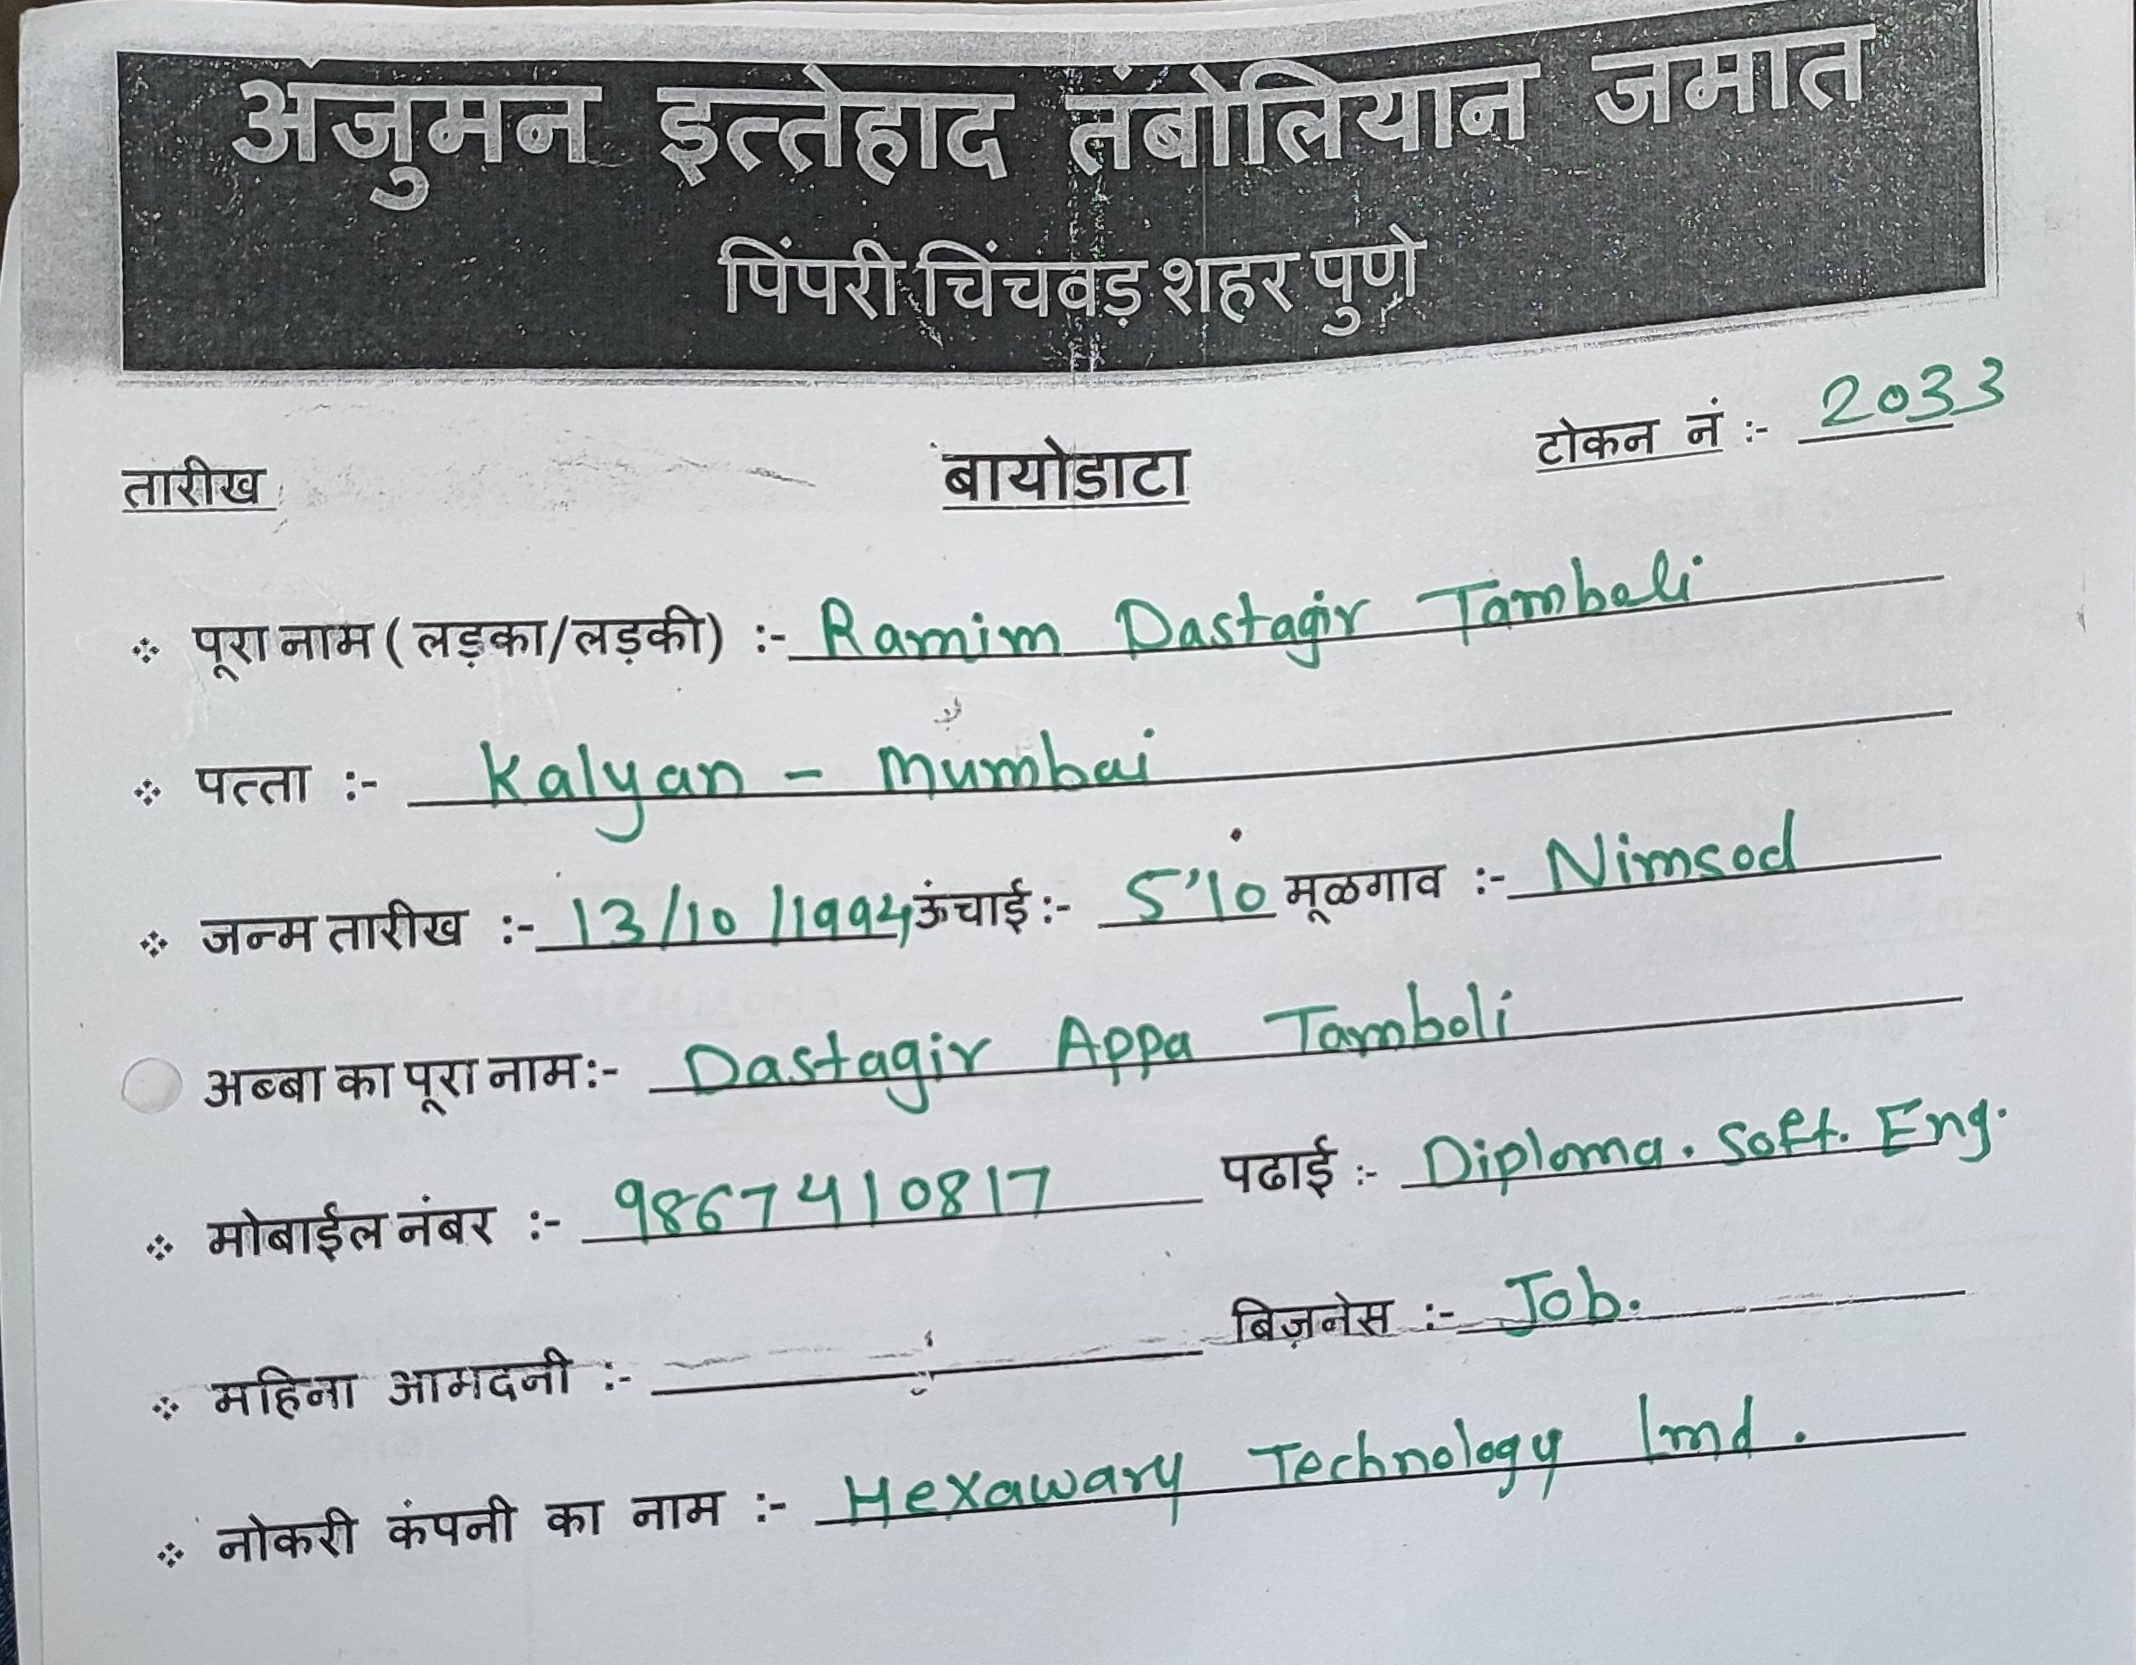 अंजुमन इत्तेहाद तंबोलियान जमात
पिंपरी चिंचवड़ शहर पुणे
टोकन नं :- 2033
तारीख बायोडाटा
पूरा नाम ( लड़का/लड़की) :- Ramim Dastagir Tamboli
पत्ता :- Kalyan - Mumbai
जन्म तारीख :- 13/10/1994 ऊंचाई :- 5'10 मूळगाव :- Nimsod
अब्बा का पूरा नाम:- Dastagir Appa Tamboli
मोबाईल नंबर :- 9867410817 पढाई :- Diploma. Soft. Eng.
महिना आमदनी :- बिज़नेस :- Job.
नोकरी कंपनी का नाम :- Hexawary Technology lmd.